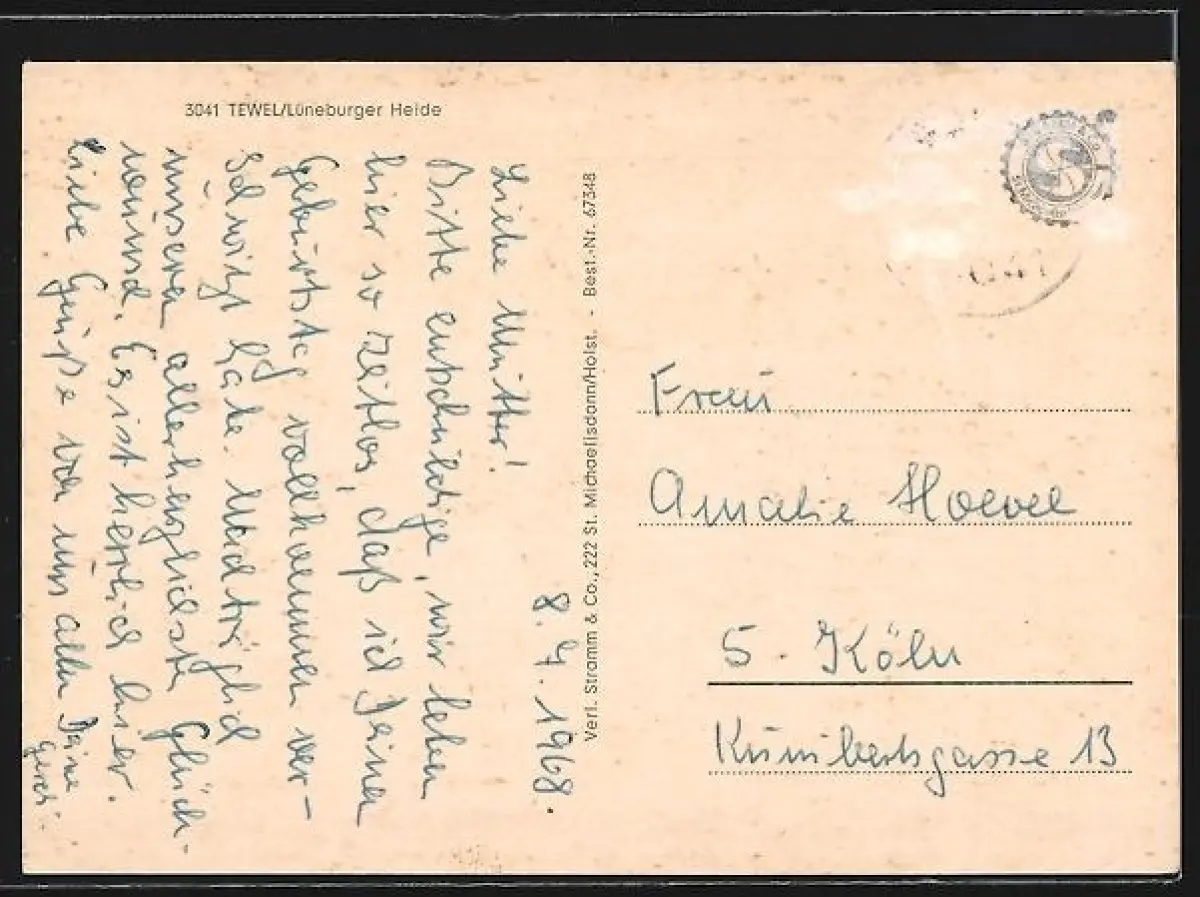 3041 TEWEL/Lüneburger Heide
8. 7. 1968.
Liebe Mutter!
Bitte entschuldige, wir leben
hier so zeitlos, daß ich Deinen
Geburtstag vollkommen ver-
schwitzt habe. Nachträglich
unseren allerherzlichsten Glück-
wunsch. Es ist herrlich hier.
Liebe Grüße von uns allen Deine
Verl. Stramm & Co., 222 St. Michaelisdonn/Holst. - Best.-Nr. 67348
Frau
Amalie Hoevel
5. Köln
Kunibertsgasse 13